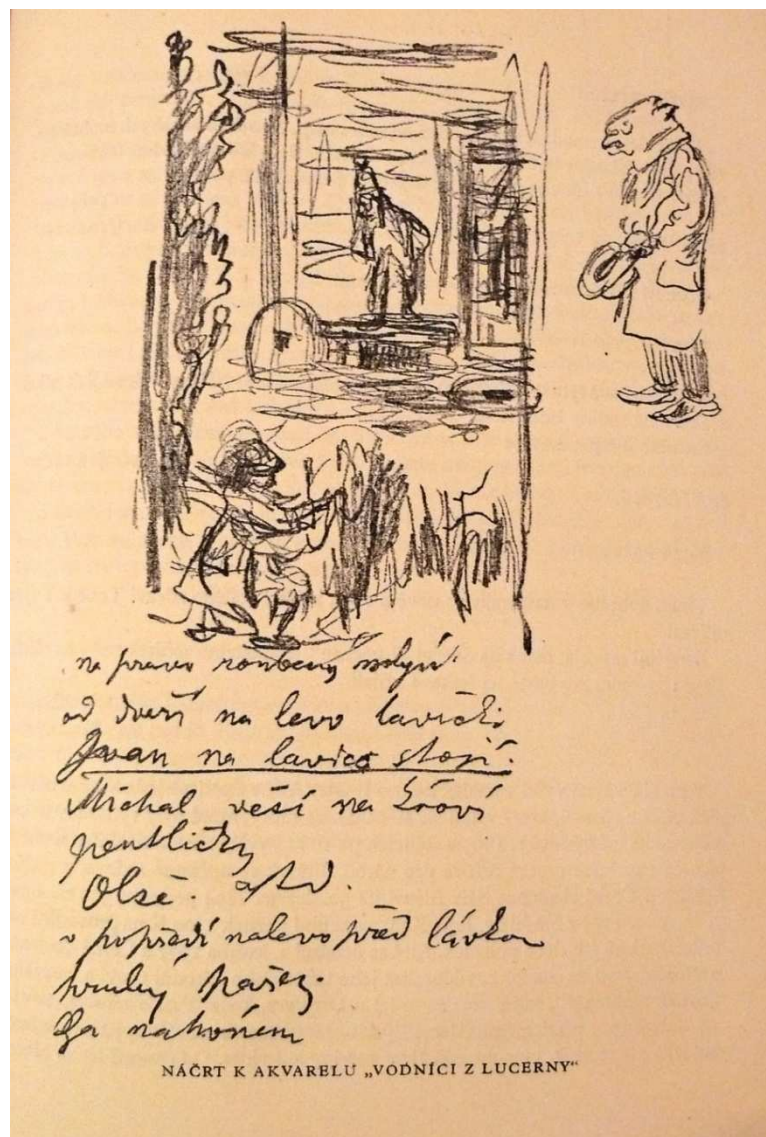 na pravo roubený mlýn.
od dveří na levo lavička
Ivan na lavice stojí.
Michal věší na křoví
pentličky
Olše. atd.
v popředí nalevo před lávkou
hrubý pařez.
na
NÁČRT K AKVARELU „VODNÍCI Z LUCERNY“